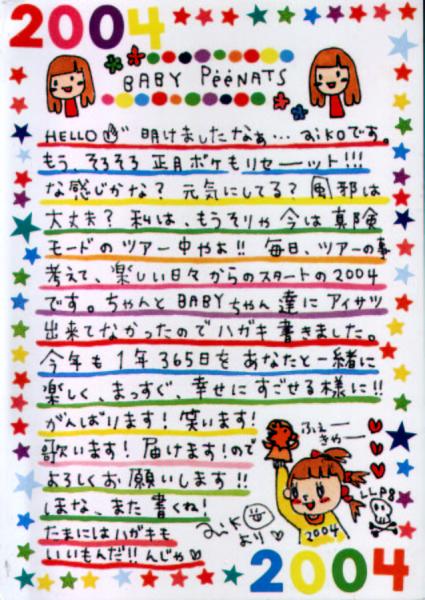 2004
BABY PééNATS
HELLO 明けましたなぁ…aikoです。
もう、そろそろ正月ボケもリセーット!!!
な感じかな？元気にしてる？風邪は
大丈夫？私は、もうそりゃ今は真険
モードのツアー中やぁ!!毎日、ツアーの事
考えて、楽しい日々からのスタートの2004
です。ちゃんとBABYちゃん達にアイサツ
出来てなかったのでハガキ書きました。
今年も1年365日をあなたと一緒に
楽しく、まっすぐ、幸せにすごせる様に!!
がんばります！笑います！
歌います！届けます！ので
よろしくお願いします!!
ほな、また書くね！
たまにはハガキも
いいもんだ!!んじゃ♡
aiko
より♡
ふぇー
きゃー
LLP8
2004
2004